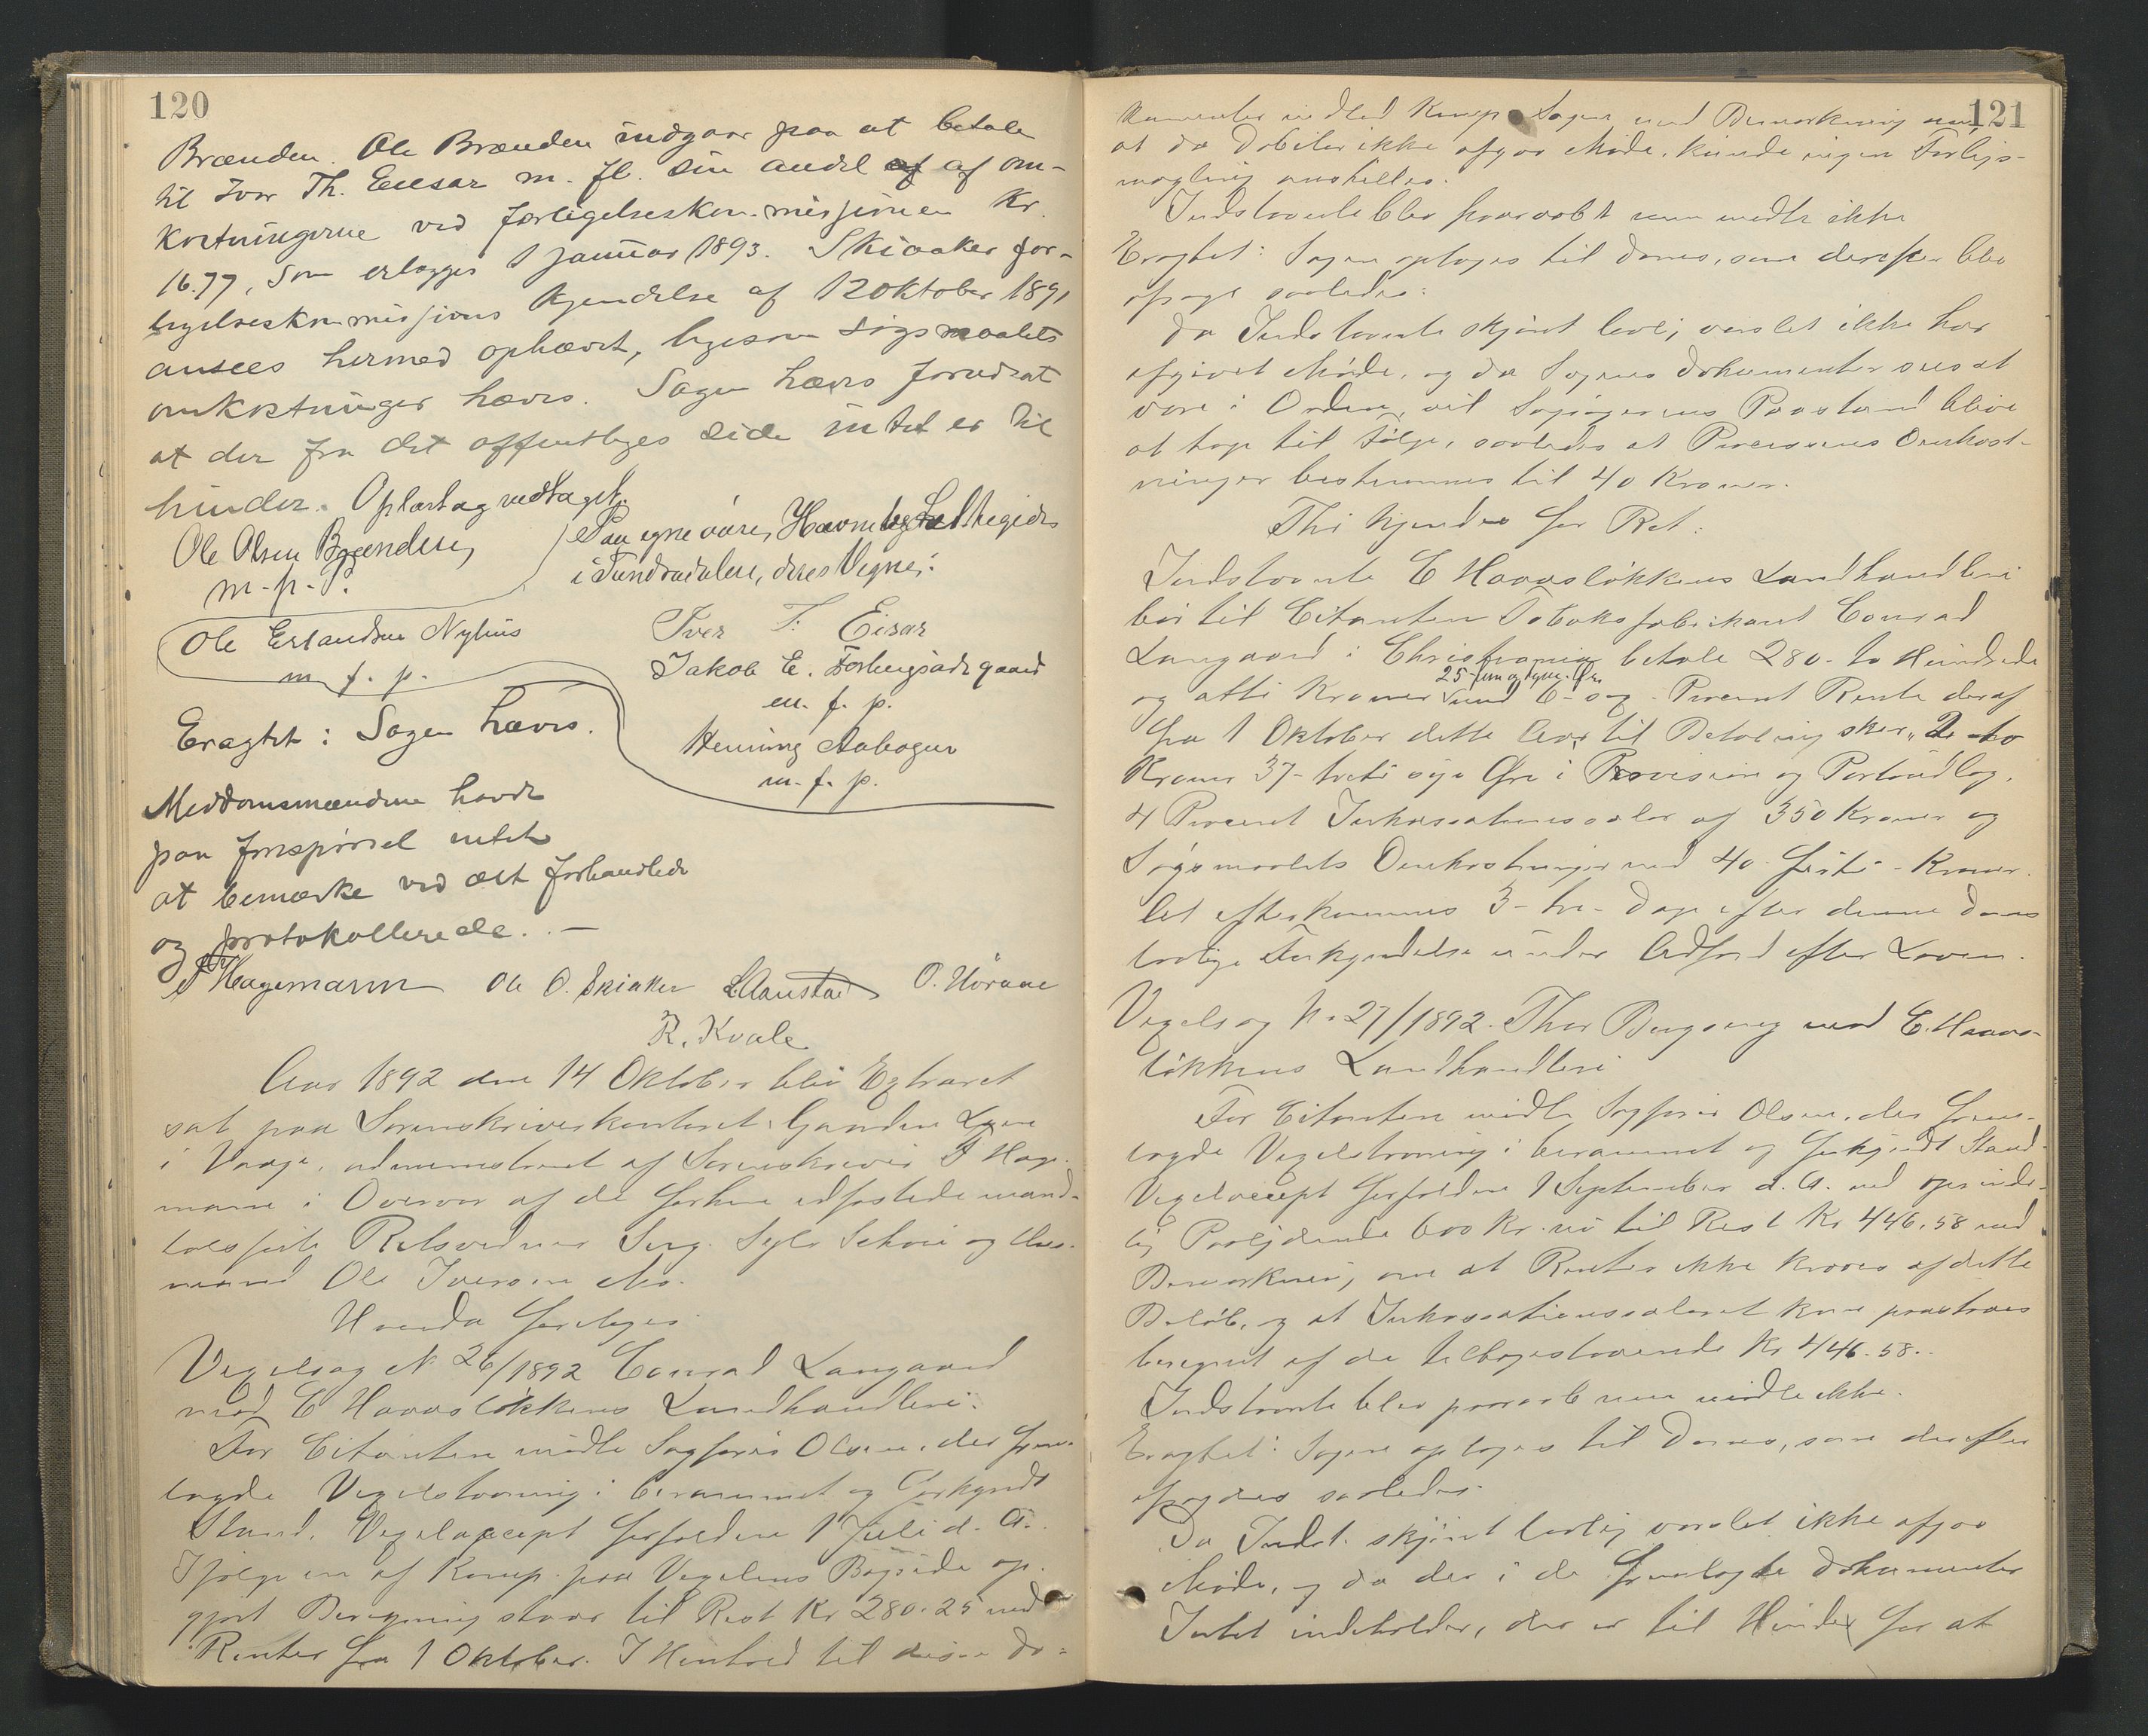 120
Brænden. Ole Brænden indgaar paa at betale
til Ivar Th. Eiesar m. fl. sin andel af af om-
kostningerne ved forligelseskommissionen Kr.
16.77, som erlægges 1 januar 1893. Skiaaker for-
ligelseskommissions Kjendelse af 12 oktober 1891
ansees hermed ophævet, ligesom søgsmaalets
omkostninger hæves. Sagen hæves forudsat
at der fra det offentliges side intet er til
hinder. Oplæst og vedtaget.
Ole Olsen Brænden,
m. p. P.
Paa egne våre, Havnelag
i Tundradalen, deres Vegne:
Ole Erlandsen Nyhus
m. f. p.
Iver T. Eisar
Jakob E. Forbergsødegaard
m. f. p.
Henning Aabogen
m. f. p.
Eragtet: Sagen hæves.
Meddomsmændene havde
paa forespørsel intet
at bemærke ved det forhandlede
og protokollerede. —
T Hagemann Ole O. Skiaker L Aanstad O. Høraae
R. Kvale
Aar 1892 den 14 Oktober blev Extraret
sat paa Sorenskriverkontoret, Gaarden
i Vaage, administreret af Sorenskriver T Hage-
mann i Overvær af de forhen edfæstede mand-
talsførte Retsvidner Serg. Sylv. Schou og Hus-
mand Ole Iversen Mo.
Hvorda foretoges
Vexelsag N 26/1892 Conrad Langaard
mod E Haavsløkkens Landhandleri.
For Citanten mødte Sagfører Olsen, der frem-
lagde Vexelstævning i berammet og forkyndt
Stand, Vexelaccept forfalden 1 Juli d. A.
Ifølge en af Komp. paa Vexelens Bagside op-
gjort Beregning staar til Rest Kr 280.25 med
Renter fra 1 Oktober. I Henhold til disse do-
121
kumenter indlod Komp. Sagen med Bemærkning om,
at da Debitor ikke afgav Møde, kunde ingen Forligs-
mægling anstilles.
Indstævnte blev paaraabt men mødte ikke
Eragtet: Sagen optages til Doms, som derefter blev
afsagt saaledes:
Da Indstævnte skjønt lovlig varslet ikke har
afgivet Møde, og da Sagens Dokumenter sees at
være i Orden, vil Sagsøgerens Paastand blive
at tage til Følge, saaledes at Processens Omkost-
ninger bestemmes til 40 Kroner.
Thi kjendes for Ret:
Indstævnte E Haavsløkkens Landhandleri
bør til Citanten Tobaksfabrikant Conrad
Langaard i Christiania betale 280- to Hundrede
25 fem og tyve Øre
og otti Kroner med 6- sex- Procent Rente deraf
fra 1 Oktober dette Aar til Betaling sker, 2- to
Kroner 37- treti syv Øre i Provision og Portoudlæg,
4 Procent Inkassationssalær af 350 Kroner og
Søgsmaalets Omkostninger med 40- førti- Kroner.
At efterkommes 3- tre- Dage efter denne Doms
lovlige Forkyndelse under Adfærd efter Loven.
Vexelsag N. 27/1892. Thor Bugserg mod E. Haavs-
løkkens Landhandleri
For Citanten mødte Sagfører Olsen, der frem-
lagde Vexelstævning i berammet og forkyndt Stand-
Vexelaccept forfalden 1 September d. A. med oprinde-
lig Paalydende 600 Kr. nu til Rest Kr 446.58 med
Bemærkning, om at Renter ikke kræves af dette
Beløb, og at Inkassationssalæret kun paastaaes
beregnet af de tilbagestaaende Kr 446.58.
Indstævnte blev paaraabt men mødte ikke.
Eragtet: Sagen optages til Doms, som derefter
afsagdes saaledes.
Da Indst. skjønt lovlig varslet ikke afgav
Møde, og da der i de fremlagte Dokumenter
Intet indeholdes, der er til Hinder for at